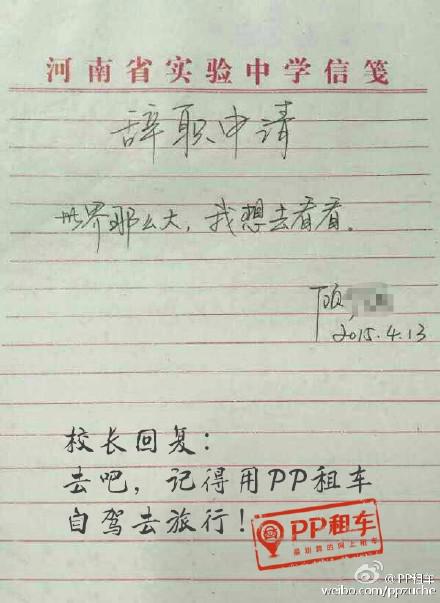 河南省实验中学信笺
辞职申请
世界那么大，我想去看看。
顾
2015.4.13
校长回复：
去吧，记得用PP租车
自驾去旅行！
PP租车
@PP租车
weibo.com/ppzuche